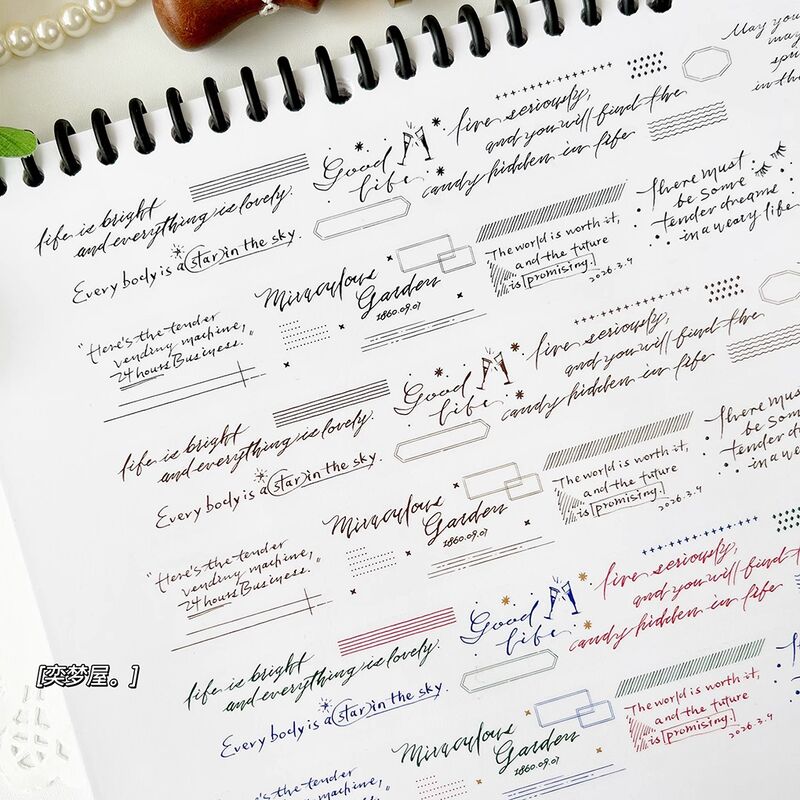 May you
may
spi
in th
live seriously,
and you will find the
candy hidden in life
Good
life
life is bright
and everything is lovely.
Every body is a star in the sky.
There must
be some
tender dreams
in a weary life
The world is worth it,
and the future
is promising.
2026.3.9
Miraculous
Garden
1860.09.07
"Here's the tender
vending machine,
24 hours Business."
live seriously,
and you will find the
candy hidden in life
Good
life
life is bright
and everything is lovely.
Every body is a star in the sky.
There must
be Som
tender d
in a we
The world is worth it,
and the future
is promising.
2026.3.9
Miraculous
Garden
1860.09.07
"Here's the tender
vending machine,
24 hours Business."
live seriously,
and you will find the
candy hidden in life
Good
life
life is bright
and everything is lovely.
Every body is a star in the sky.
The world is worth it,
and the future
is promising.
2026.3.9
Miraculous
Garden
1860.09.07
Here's the tender
vending machine,
[奕梦屋。]